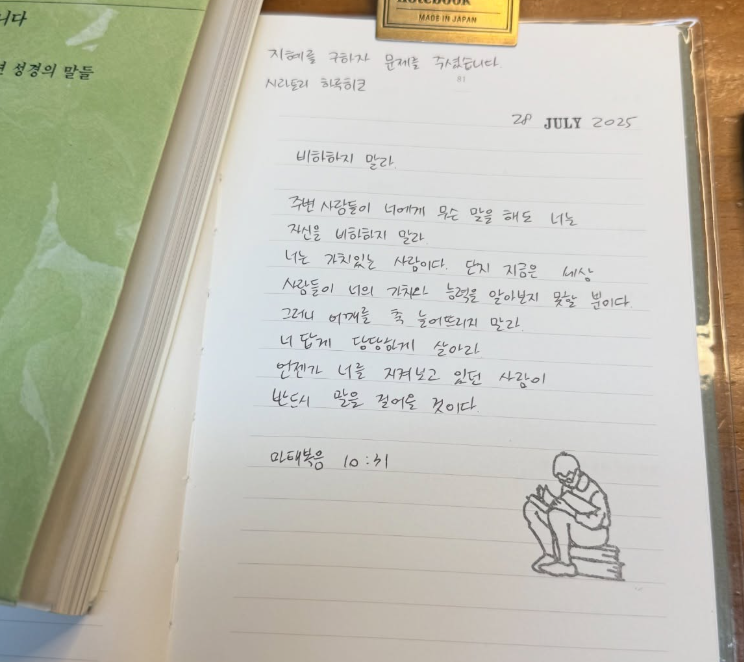 니다
성경의 말들
notebook
MADE IN JAPAN
지혜를 구하자 문제를 주셨습니다.
81
시라토리 하루히코
28 JULY 2025
비하하지 말라
주변 사람들이 너에게 무슨 말을 해도 너는
자신을 비하하지 말라.
너는 가치있는 사람이다. 단지 지금은 세상
사람들이 너의 가치와 능력을 알아보지 못할 뿐이다.
그러니 어깨를 축 늘어뜨리지 말라.
너 답게 당당하게 살아라
언젠가 너를 지켜보고 있던 사람이
반드시 말을 걸어올 것이다.
마태복음 10:31